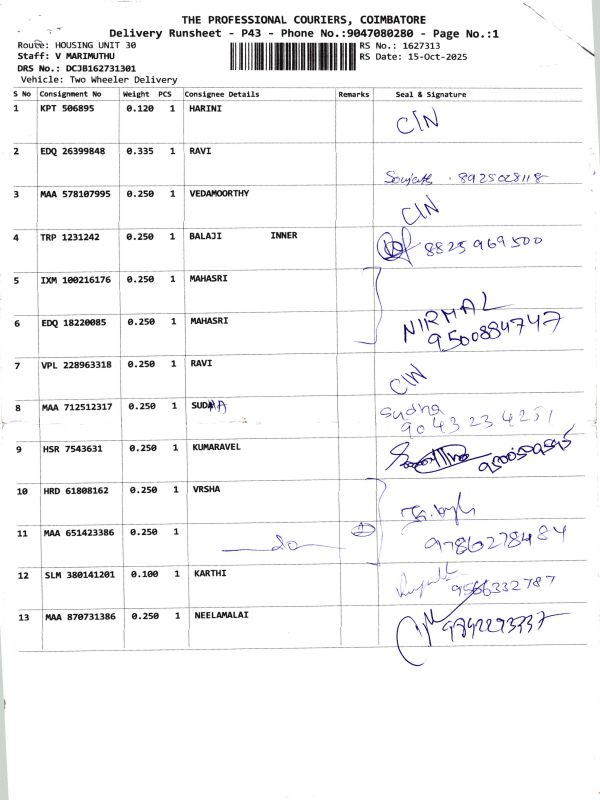 THE PROFESSIONAL COURIERS, COIMBATORE
Delivery Runsheet - P43 - Phone No.:9047080280 - Page No.:1
Route: HOUSING UNIT 30 RS No.: 1627313
Staff: V MARIMUTHU RS Date: 15-Oct-2025
DRS No.: DCJB162731301
Vehicle: Two Wheeler Delivery
S No Consignment No Weight PCS Consignee Details Remarks Seal & Signature
1 KPT 506895 0.120 1 HARINI C/N
2 EDQ 26399848 0.335 1 RAVI 8925028118
3 MAA 578107995 0.250 1 VEDAMOORTHY C/N
4 TRP 1231242 0.250 1 BALAJI INNER 8825969500
5 IXM 100216176 0.250 1 MAHASRI
6 EDQ 18220085 0.250 1 MAHASRI NIRMAL
9500884747
7 VPL 228963318 0.250 1 RAVI C/N
8 MAA 712512317 0.250 1 SUDHA Sudha
9043234251
9 HSR 7543631 0.250 1 KUMARAVEL
10 HRD 61808162 0.250 1 VRSHA
11 MAA 651423386 0.250 1 do 9786278484
12 SLM 380141201 0.100 1 KARTHI 9566332787
13 MAA 870731386 0.250 1 NEELAMALAI